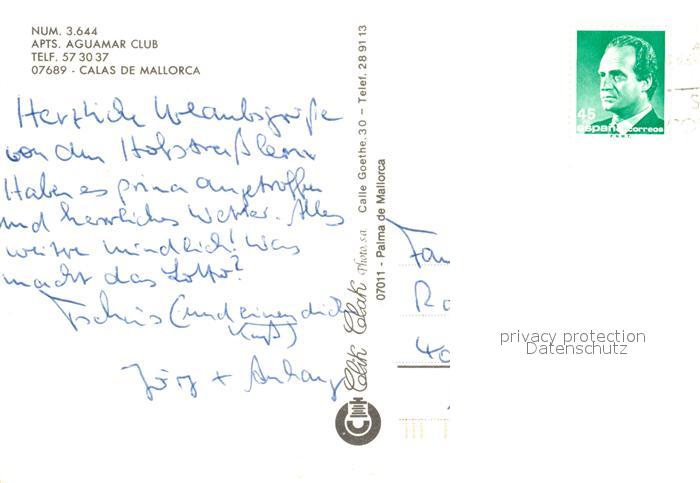 NUM. 3.644
APTS. AGUAMAR CLUB
TELF. 57 30 37
07689 - CALAS DE MALLORCA
Herzliche Urlaubsgrüße
von den Hofstraßlern
Haben es prima angetroffen
und herrliches Wetter. Alles
weitere mündlich! Was
macht das Lotto?
Tschüs (und einen dicken
Kuß)
Jörg + Anhang
Clik Clak Photo, s.a. Calle Goethe, 30 - Telef. 28 91 13
07011 - Palma de Mallorca
45
españa correos
Fam
Ro
40
privacy protection
Datenschutz